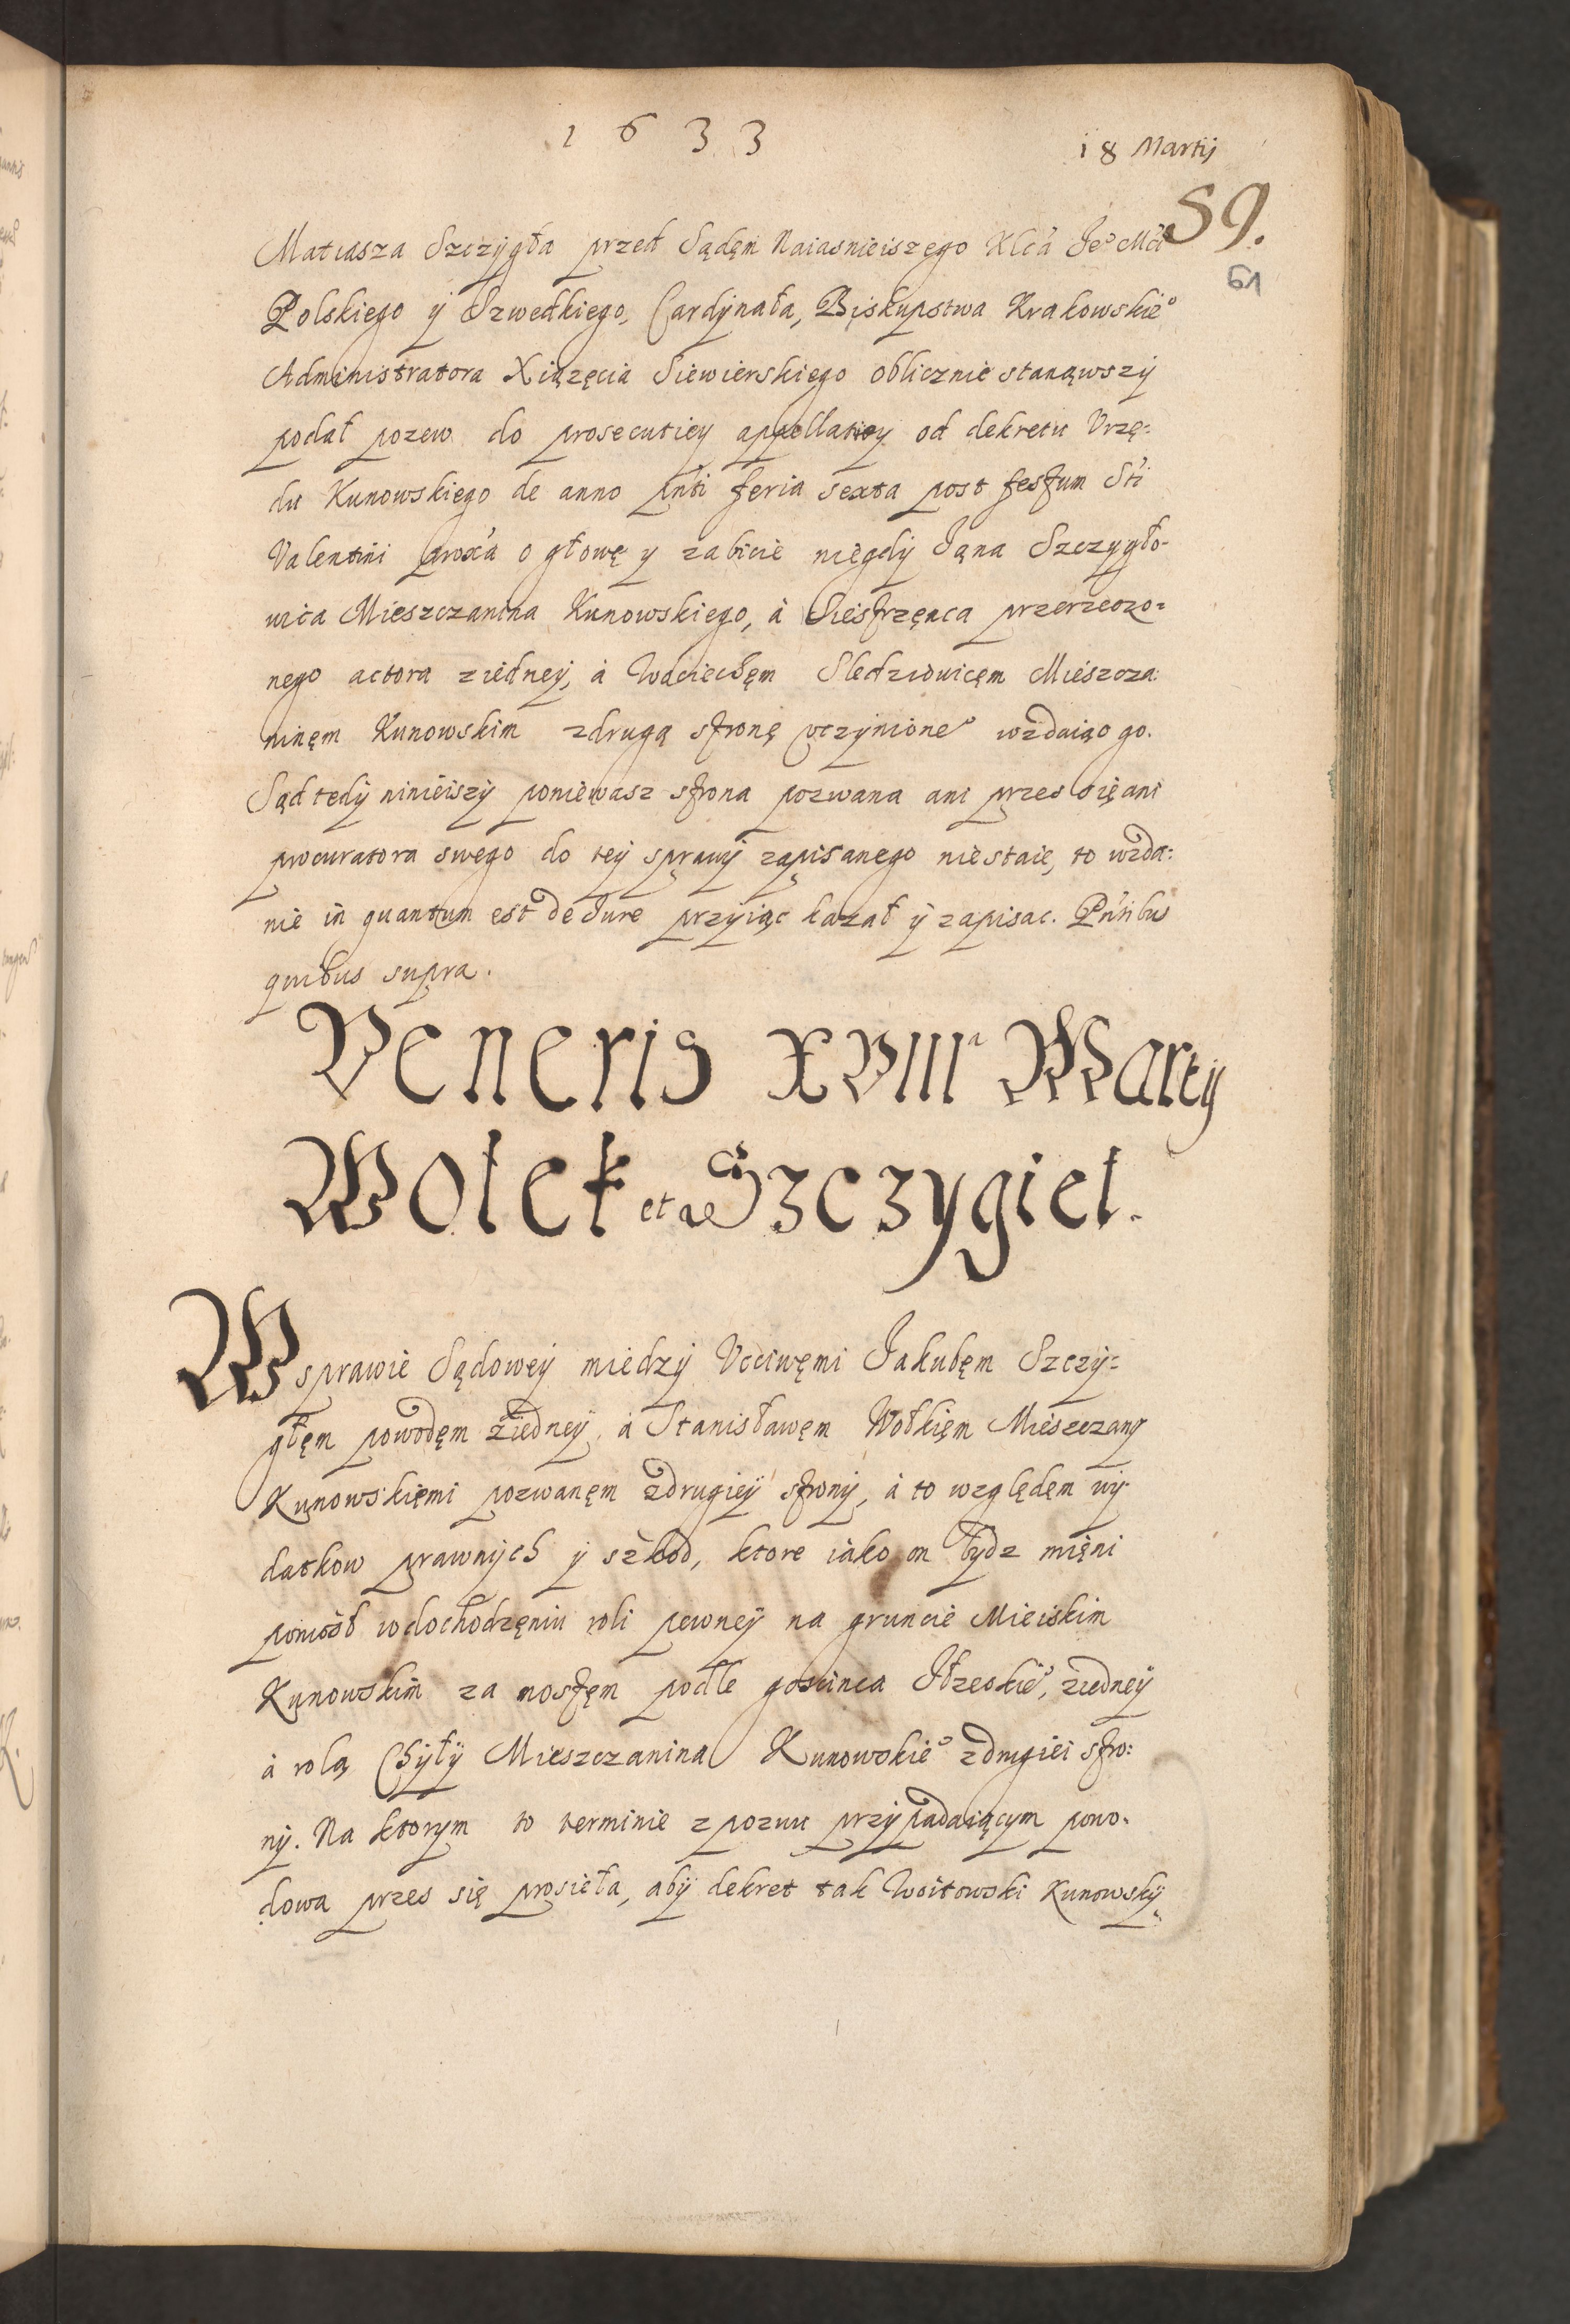 1633
18 Martij
59.
61
Matiasza Szczygła przed Sądęm Naiasnieiszego Xcia Je° Mći
Polskiego ÿ Szwedkiego, Cardÿnała, Biskupstwa Krakowskie°
Administratora Xiązęcia Siewierskiego oblicznie stanąwszÿ
podał pozew do prosecutiey appellatiey od dekretu Vrzę:
du Kunowskiego de anno pnti feria sexta post festum Sti
Valentini prox'a o głowę y zabicie niegdÿ Jąna Szczygło-
wica Mieszczanina Kunowskiego, à Siestrzęnca przerzeczo=
nego actora ziedneÿ, à Woiciechęm Sledziowicęm Miészcza:
ninęm Kunowskim zdrugą stronę vczÿnione° wzdaiąc go.
Sąd tedÿ ninieiszÿ poniewasz strona pozwana ani przes się ani
procuratora swego do teÿ sprawÿ zapisanego niestaie, to wzda:
nié in quantum est de Jure przÿiąc kazał ÿ zapisac. Pntibus
quibus supra.
Veneris XVIII Martÿ
Wołek et Szczygieł.
W sprawie Sądoweÿ miedzÿ Vcciwęmi Jakubęm Szczÿ=
głęm powodęm ziedneÿ, à Stanisławęm Wołkięm Miészczanÿ
Kunowskięmi pozwanęm zdrugieÿ stronÿ, à to względęm wÿ
datkow prawnÿch ÿ szkod, ktore iako on bydz mięni
poniosł w dochodzęniu roli pewneÿ na gruncie Mieiskim
Kunowskim za mostęm podle goscinca Iłzeckie°, ziedneÿ
à rolą Chÿłÿ Mieszczanina Kunowskie° zdrugiei stro:
nÿ. Na ktorym to terminie z pozwu przÿpadaiącym powo-
dowa przes się prosieła, abÿ dekret tak Woitowski Kunowskÿ